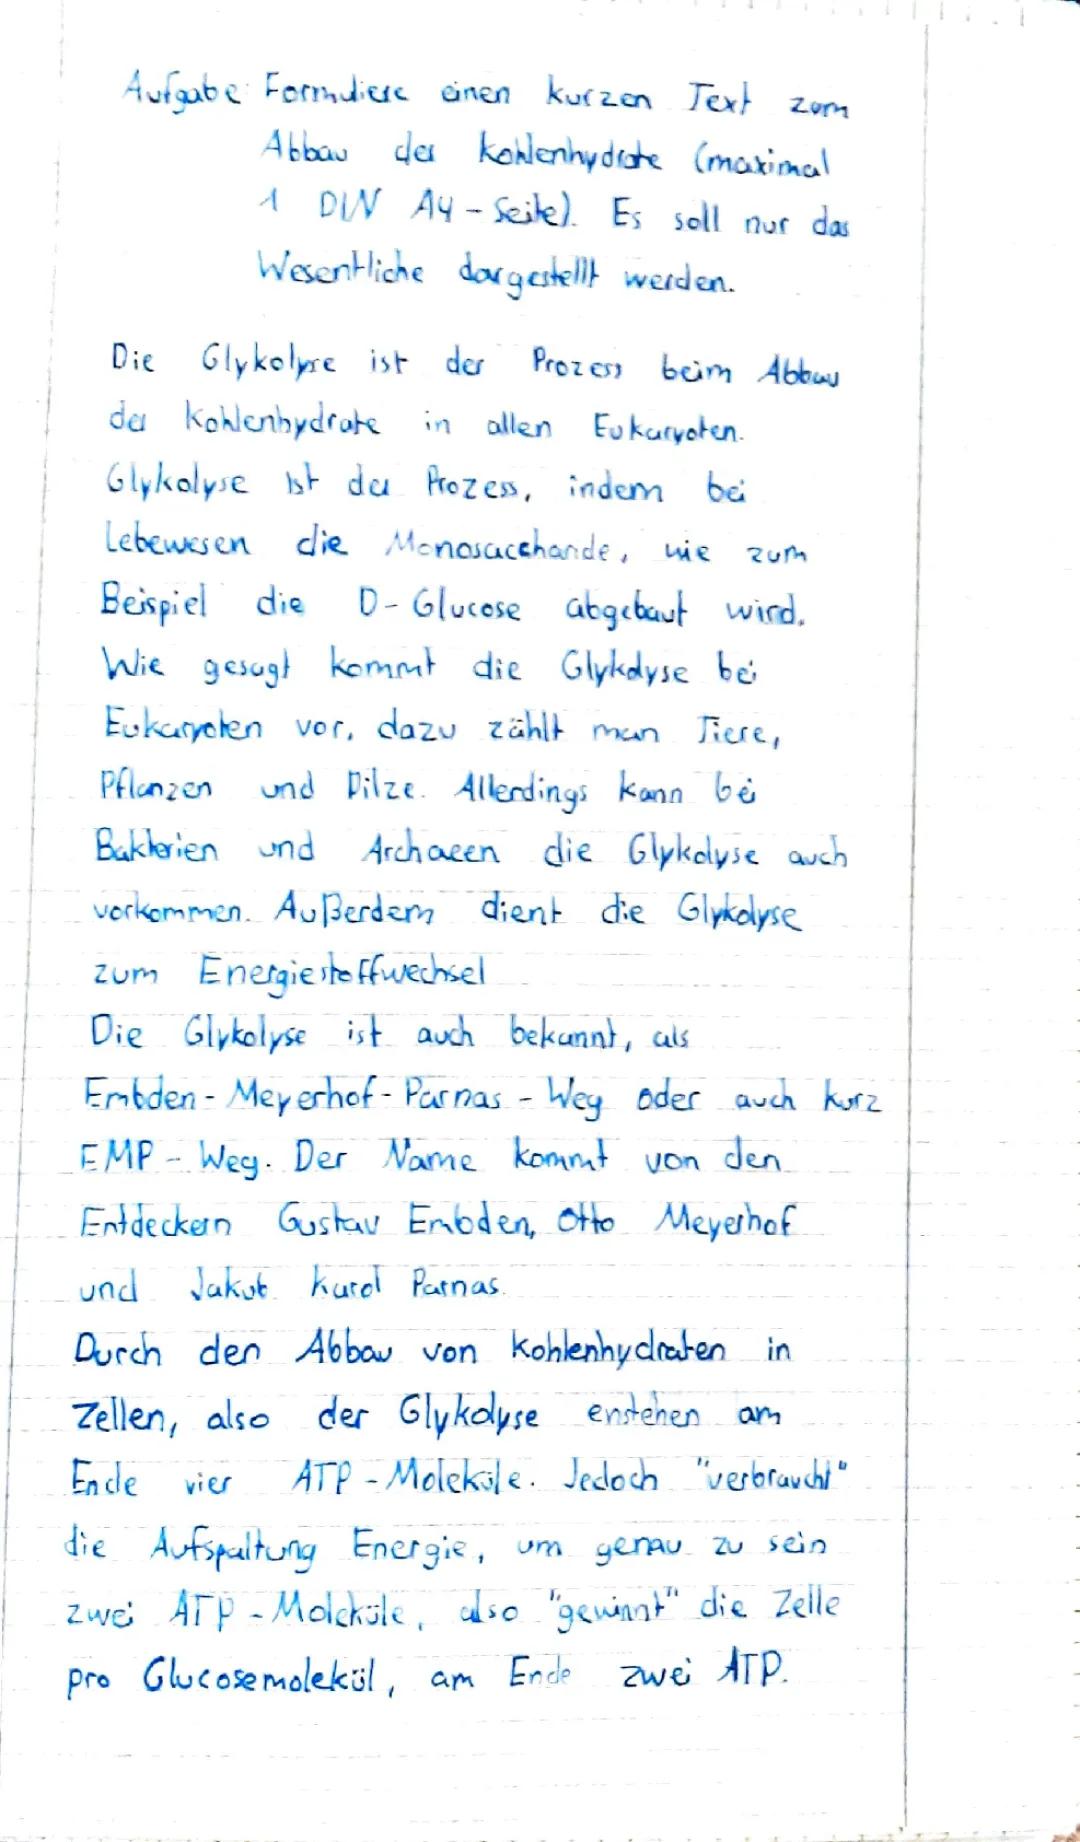 Aufgabe: Formuliere einen kurzen Text zum
Abbau der Kohlenhydrate (maximal
1 DIN A4-Seite). Es soll nur das
Wesentliche dargestellt werden.
Die Glykolyse ist der Prozess beim Abbau
der Kohlenhydrate in allen Eukaryoten.
Glykolyse ist der Prozess, indem bei
Lebewesen die Monosaccharide, wie zum
Beispiel die D-Glucose abgebaut wird.
Wie gesagt kommt die Glykolyse bei
Eukaryoten vor, dazu zählt man Tiere,
Pflanzen und Pilze. Allerdings kann bei
Bakterien und Archaeen die Glykolyse auch
vorkommen. Außerdem dient die Glykolyse
zum Energiestoffwechsel
Die Glykolyse ist auch bekannt, als
Embden-Meyerhof-Parnas-Weg oder auch kurz
EMP-Weg. Der Name kommt von den
Entdeckern Gustav Embden, Otto Meyerhof
und Jakub Karol Parnas.
Durch den Abbau von Kohlenhydraten in
Zellen, also der Glykolyse enstehen am
Ende vier ATP-Moleküle. Jedoch "verbraucht"
die Aufspaltung Energie, um genau zu sein
zwei ATP-Moleküle, also "gewinnt" die Zelle
pro Glucosemolekül, am Ende zwei ATP.